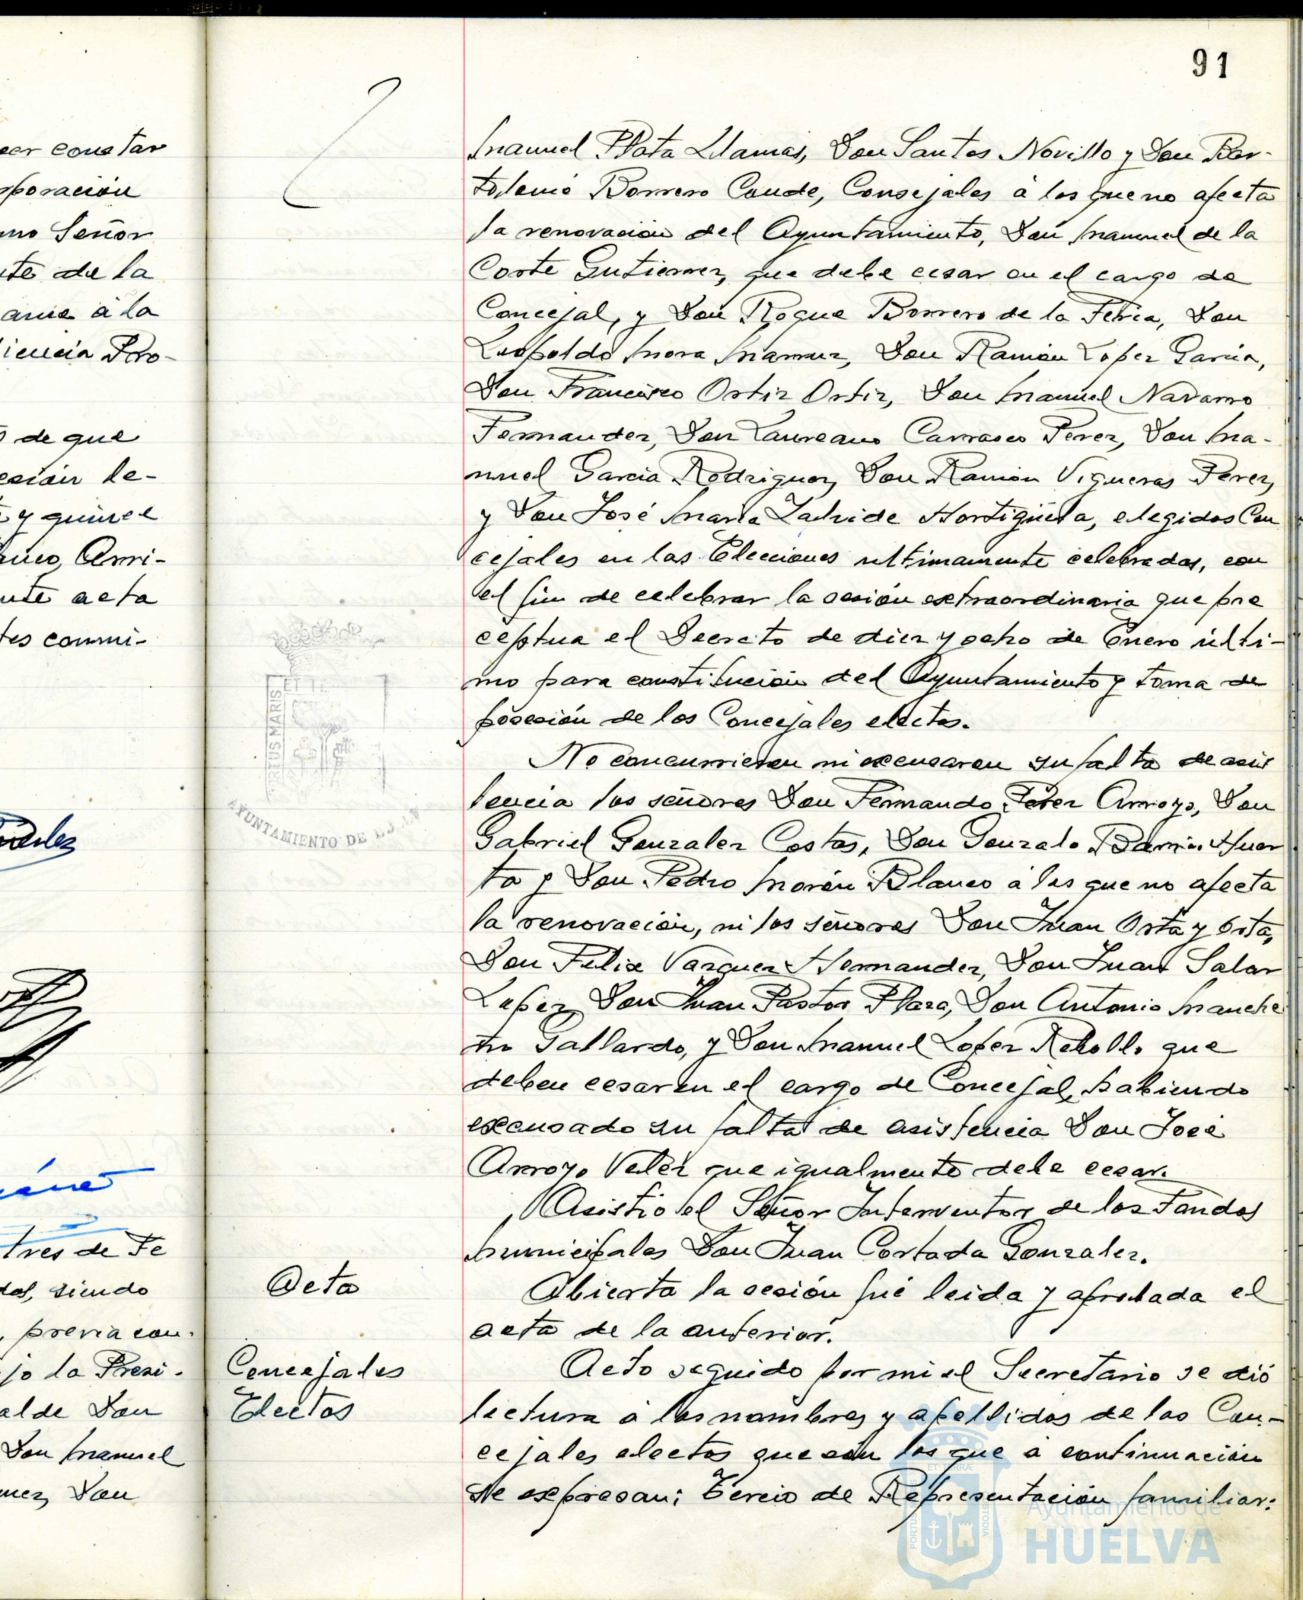 91
eer constar
rporación
mo Señor
nte de la
ame á la
iencia Pro-
s de que
esión le-
y quince
Arri-
nte acta
tes conmi-
tres de Fe
dos, siendo
, previa con-
jo la Presi-
alde Don
Don Manuel
mez, Don
Acta
Concejales
Electos
Manuel Plata Llamas, Don Santos Novillo y Don Bar-
tolomé Borrero Conde, Consejales á los que no afecta
la renovación del Ayuntamiento, Don Manuel de la
Corte Gutierrez, que debe cesar en el cargo de
Concejal, y Don Roque Borrero de la Feria, Don
Leopoldo Mora Don Ramón Lopez García,
Don Francisco Ortiz Ortiz, Don Manuel Navarro
Fernandez, Don Laureano Carrasco Perez, Don Ma-
nuel García Rodriguez, Don Ramón Vigueras Perez,
y Don José María Hortigüela, elegidos Con
cejales en las Elecciones ultimamente celebradas, con
el fin de celebrar la sesión extraordinaria que pre
ceptua el Decreto de diez y ocho de Enero últi-
mo para constitución del Ayuntamiento y toma de
posesión de los Concejales electos.
No concurrieron ni excusaron su falta de asis
tencia los señores Don Fernando Perez Arroyo, Don
Gabriel Gonzalez Costas, Don Gonzalo Barrios Huer
ta y Don Pedro Morón Blanco á los que no afecta
la renovación, ni los señores Don Juan Orta y Orta,
Don Felix Vazquez Hernandez, Don Juan Salar
Lopez, Don Juan Pastor Plaza, Don Antonio Manche
ño Gallardo, y Don Manuel Lopez Rebollo que
deben cesar en el cargo de Concejal, habiendo
excusado su falta de asistencia Don José
Arroyo Velez que igualmente debe cesar.
Asistió el Señor Interventor de los Fondos
Municipales Don Juan Cortada Gonzalez.
Abierta la sesión fué leida y aprobada el
acta de la anterior.
Acto seguido por mi el Secretario se dió
lectura á los nombres y apellidos de los Con-
cejales electos que son los que á continuación
se expresan; Tercio de Representación familiar:
PORTUS MARIS ET TE
AYUNTAMIENTO DE
Ayuntamiento de
HUELVA